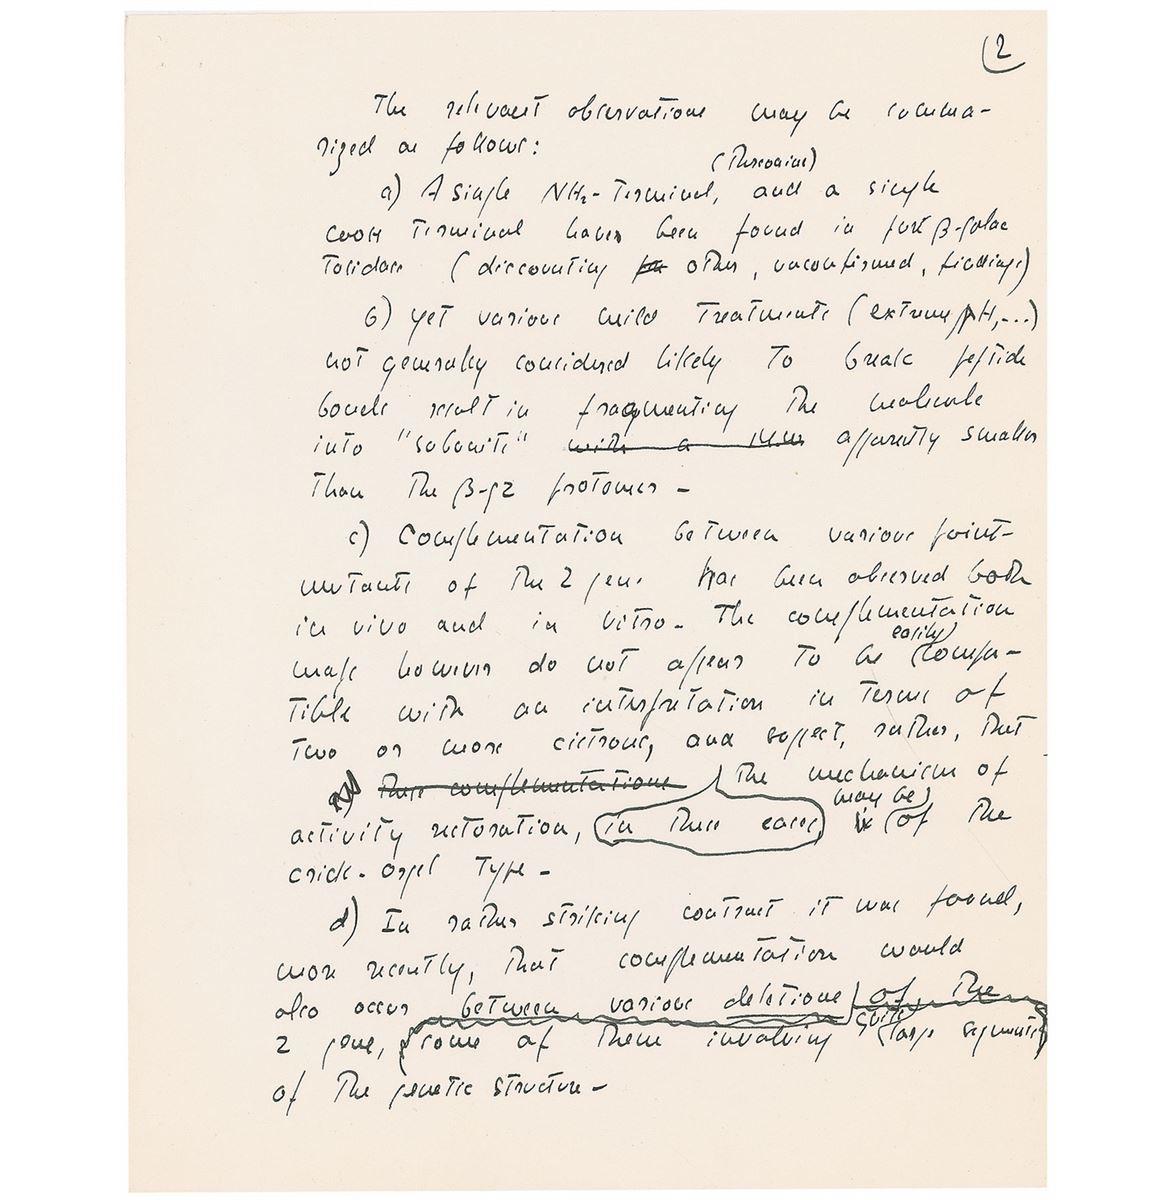 2
The relevant observations may be summa-
rized as follows:
(Threonine)
a) A single NH2-Terminal, and a single
COOH Terminal have been found in pure β-galac
tosidase (discounting for other, unconfirmed, findings)
b) Yet various mild Treatments (extreme pH,...)
not generally considered likely To break peptide
bonds result in fragmenting The molecule
into "subunits" with a apparently smaller
Than The β-gz protomer -
c) Complementation between various point-
mutants of The Z gene has been observed both
in vivo and in vitro - The complementation
easily
maps however do not appear To be compa-
Tible with an interpretation in Terms of
Two or more cistrons, and suggest, rather, that
These complementations The mechanism of
may be
activity restoration, in These cases is of The
Crick-Orgel Type -
d) In rather striking contrast it was found,
more recently, That complementation would
also occur between various deletions of The
quite
Z gene, some of Them involving large segments
of The genetic structure -